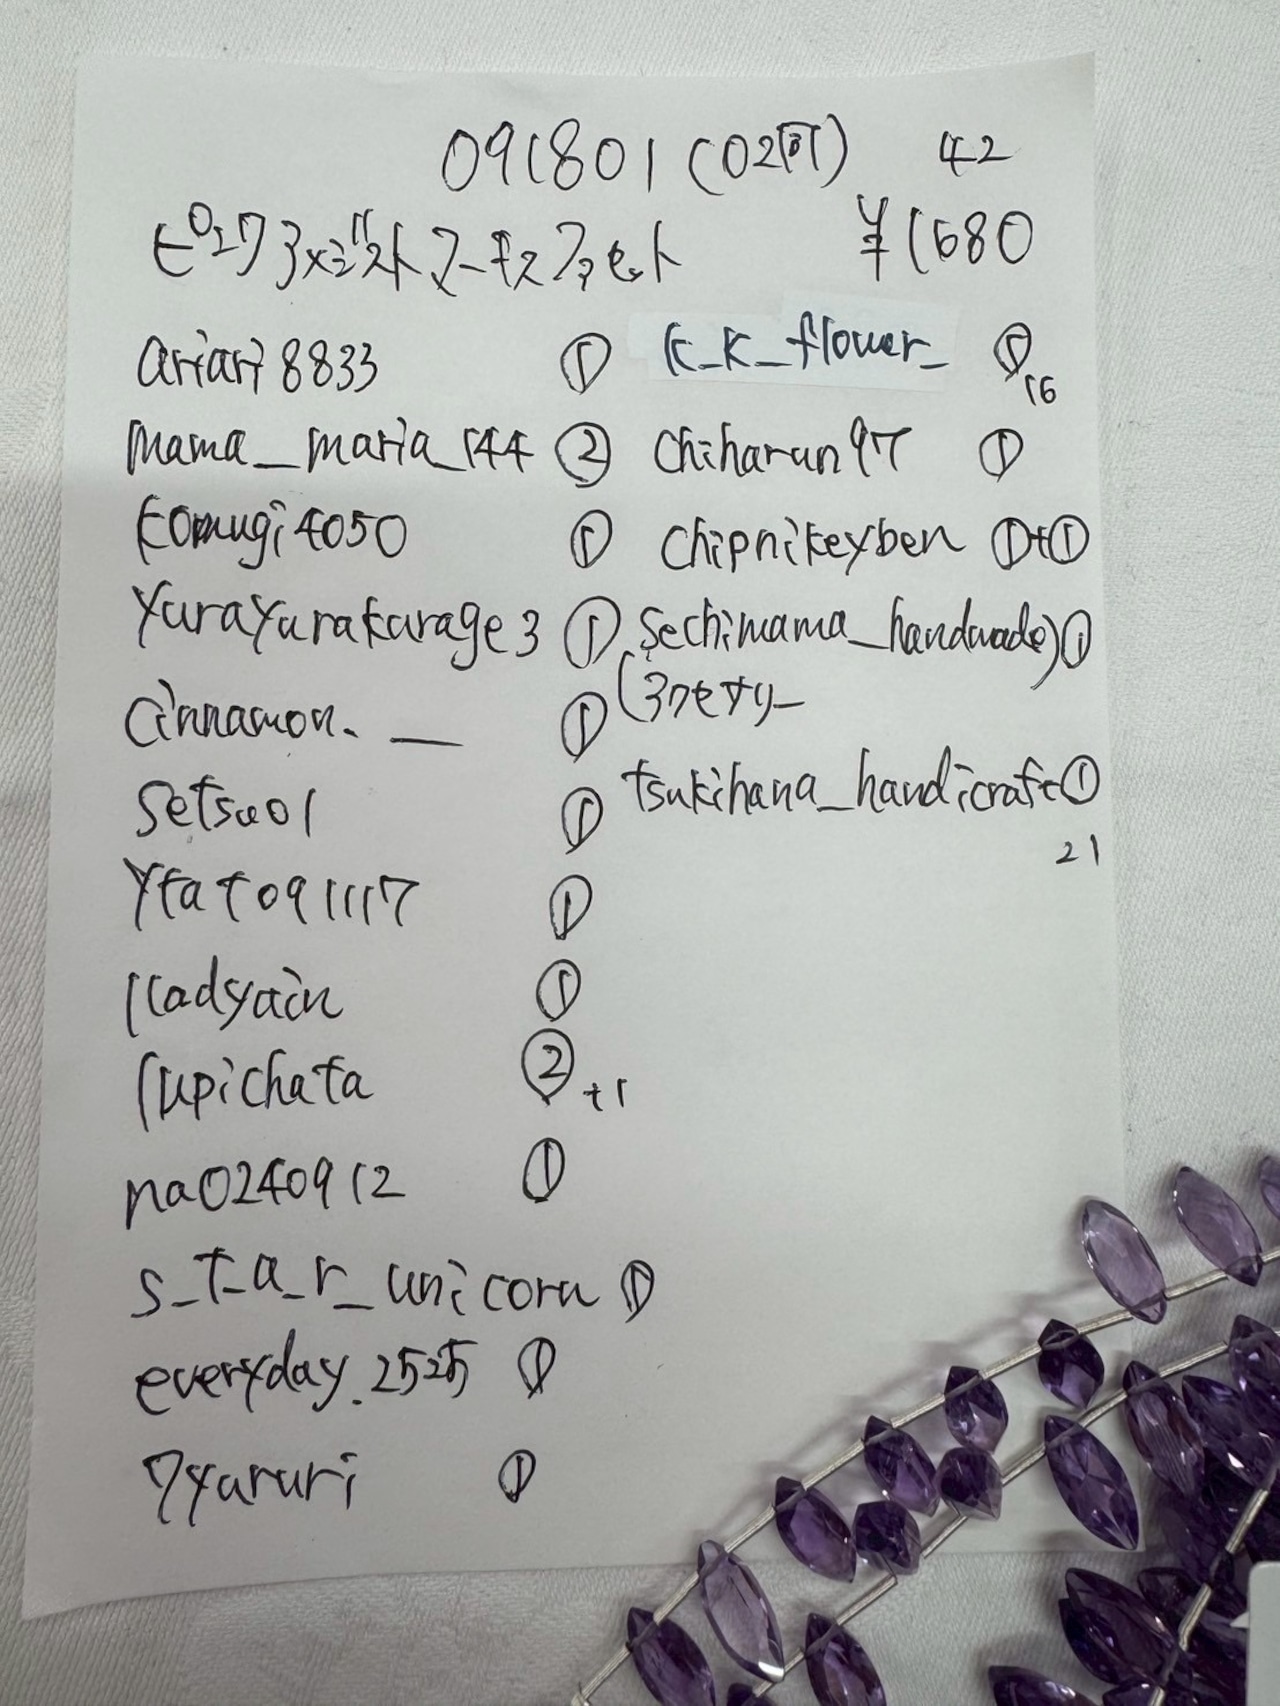 091801 (02阿) 42
ピンクアメジストマーキスファセット ¥1680
ariari8833 ①
mama_maria_144 ②
komugi4050 ①
yurayurakurage3 ①
cinnamon.__ ①
setsuo1 ①
ytat091117 ①
kadyain ①
lupichata ② +1
na0240912 ①
s_t_a_r_unicorn ①
everyday.2525 ①
7yaruri ①
k_k_flower_ ①
16
chiharun97 ①
chipnikeyben ①+①
sechimama_handmade) ①
(アクセサリー
tsukihana_handicraft ①
21